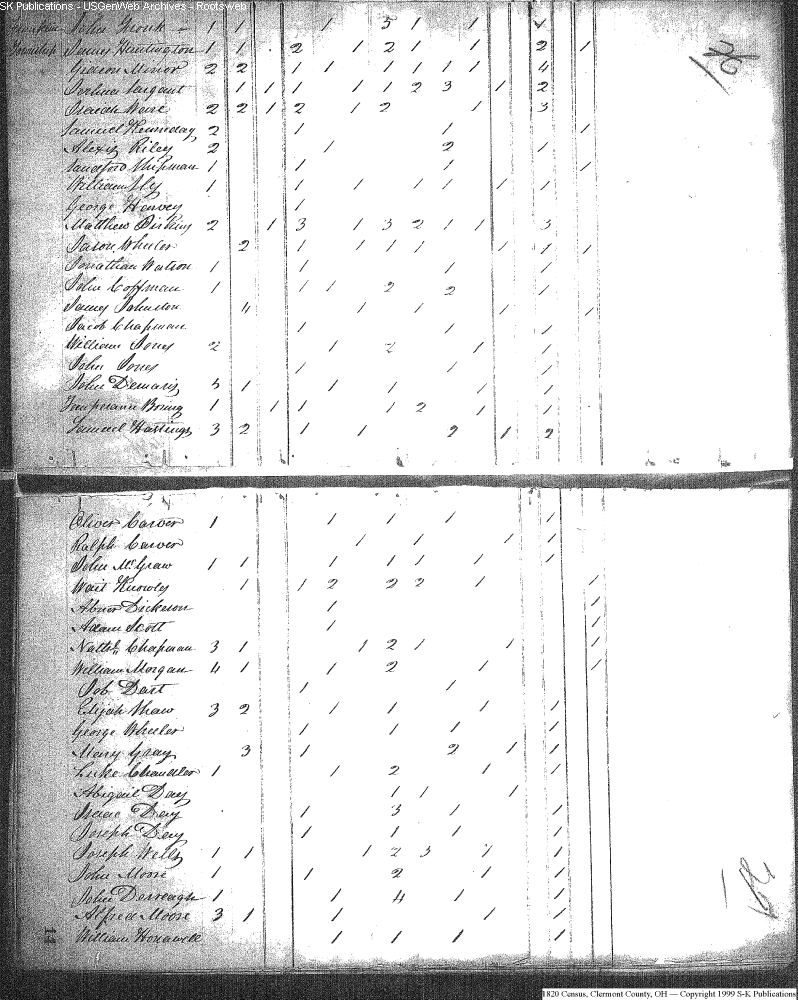 SK Publications - USGenWeb Archives - Rootsweb
John 1 1 1 5 1 1 ✓
Township James Huntington 1 1 2 1 2 1 1 2 1
Gideon Minor 2 2 1 1 1 1 1 1 4
Joshua Sargant 1 1 1 2 1 1 2 3 1 2
Isaac Ware 2 2 1 2 1 2 1 3
Samuel Kenneday 2 1 1 1
Alexis Riley 2 1 2 1
Sandford Shipman 1 1 1 1
William Sly 1 1 1 1 1 1 1
George Harvey 1
Matthew 2 1 3 1 3 2 1 1 3
Jason Wheeler 2 1 1 1 1 1 1 1
Jonathan Watson 1 1 1 1
John Coffman 1 1 1 2 2 1
James Johnston 4 1 1 1 1
Jacob Chapman 1 1 1
William Jones 2 1 2 1 1
John Jones 1 1 1
John Demaris 3 1 1 1 1 1
Temperance Boring 1 1 1 1 2 1 1
Samuel Hastings 3 2 1 1 2 1 2
Oliver Carver 1 1 1 1 1
Ralph Carver 1 1 1 1
John McGraw 1 1 1 1 1 1 1
Wait Knowly 1 1 2 2 2 1 1
Abner Dickeson 1 1
Adam Scott 1 1
Nathl. Chapman 3 1 1 2 1 1 1
William Morgan 4 1 1 2 1 1
Job Dart 1 1
Elijah Shaw 3 2 1 1 1 1
George Wheeler 1 1 1 1
Mary Gray 3 1 2 1 1
Luke Chandler 1 1 2 1 1
Abigail Day 1 1 1
Isaac Day 1 3 1 1
Joseph Day 1 1 1 1
Joseph Wells 1 1 1 2 3 1 1
John Moore 1 1 2 1
John 1 1 4 1 1
Alfred Moore 3 1 1 1 1
William Honawell 1 1 1 1
14
1820 Census, Clermont County, OH — Copyright 1999 S-K Publications